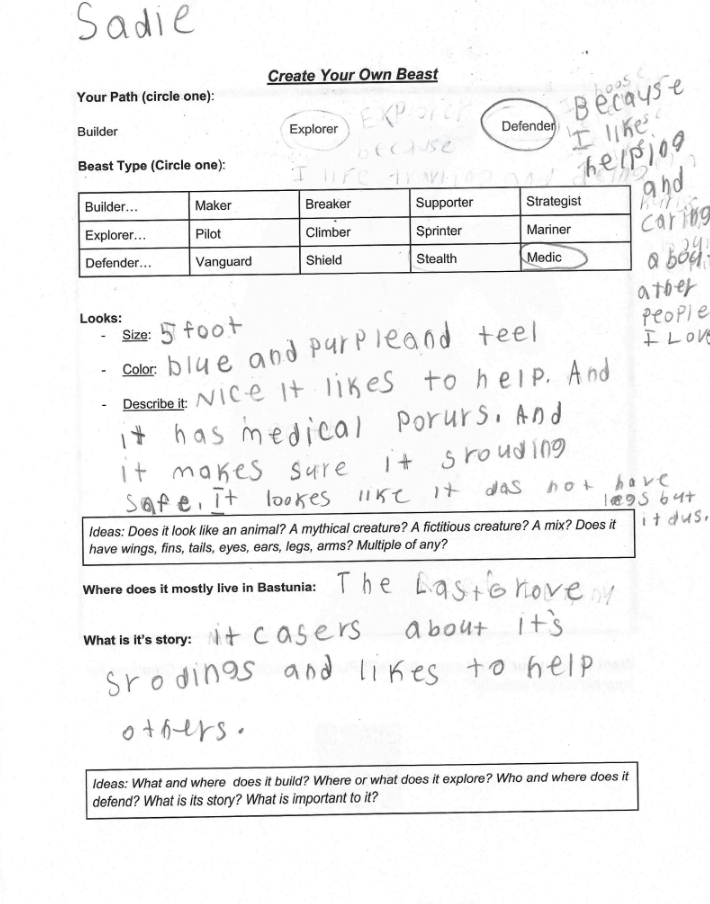 Sadie
Create Your Own Beast
Your Path (circle one):
Builder Explorer Defender
Explorer
because
I like
Because
I like
helping
and
caring
about
other
people
I Love
Beast Type (Circle one):
Builder... Maker Breaker Supporter Strategist
Explorer... Pilot Climber Sprinter Mariner
Defender... Vanguard Shield Stealth Medic
Looks:
- Size: 5 foot
- Color: blue and purpleand teel
- Describe it: Nice It likes to help. And
it has medical porurs. And
it makes sure it srouding
safe. It lookes like it das not have
legs but
it dus.
Ideas: Does it look like an animal? A mythical creature? A fictitious creature? A mix? Does it
have wings, fins, tails, eyes, ears, legs, arms? Multiple of any?
Where does it mostly live in Bastunia: The LastGrove
What is it's story: it casers about it's
srodings and likes to help
others.
Ideas: What and where does it build? Where or what does it explore? Who and where does it
defend? What is its story? What is important to it?